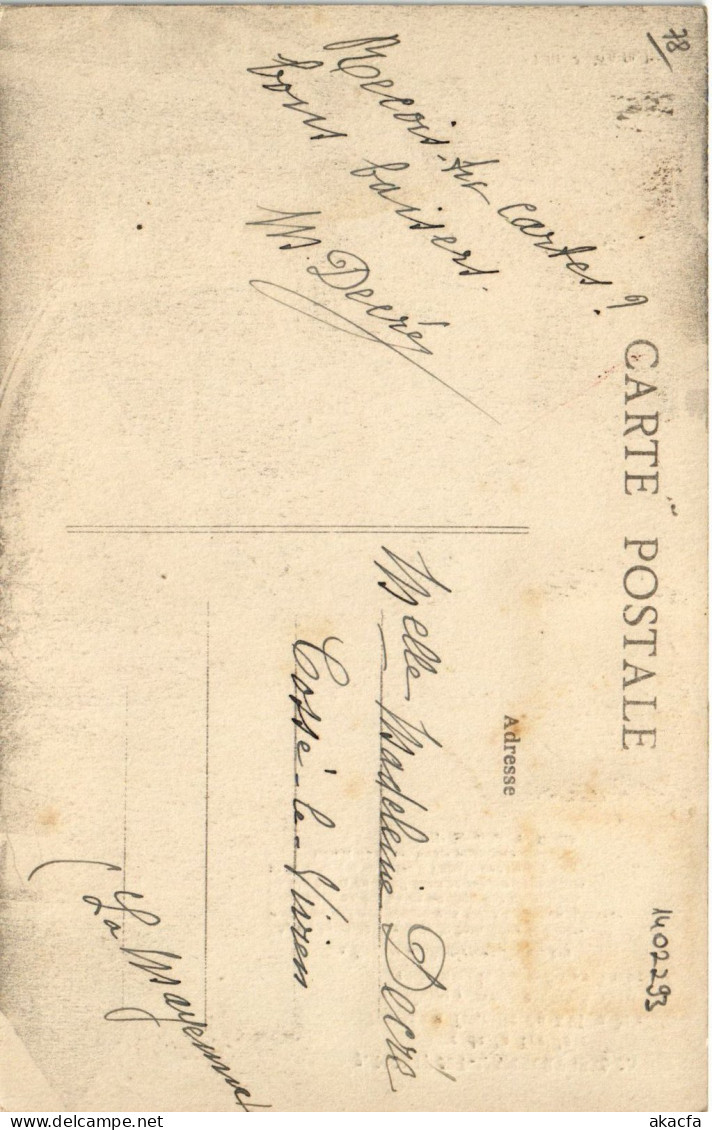 78
CARTE POSTALE
1402293
Reçois-tu cartes ?
bons baisers.
M. Decré
Adresse
Melle Madeleine Decré
Cossé-le-Vivien
(La Mayenne)
akacfa